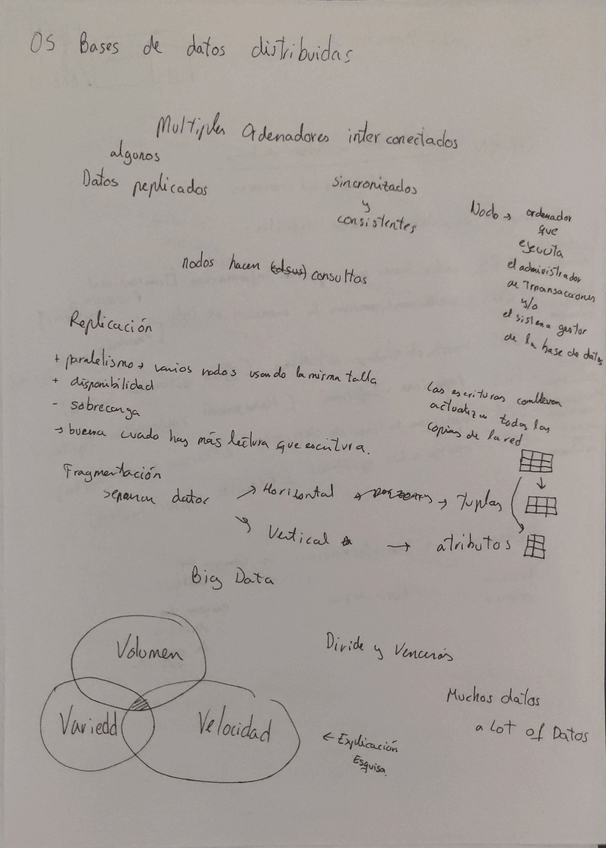 05 Bases de datos distribuidas
Multiples Ordenadores interconectados
algunos
Datos replicados
sincronizados
y
consistentes
Nodo → ordenador
que
ejecuta
el administrador
de Transacciones
y/o
el sistema gestor
de la base de datos
nodos hacen consultas
Replicación
+ paralelismo → varios nodos usando la misma talla
+ disponibilidad
- sobrecarga
→ buena cuado hay más lectura que escritura.
Las escrituras conllevan
actualizar todas las
copias de la red
Fragmentación
separar datos
→ Horizontal → tuplas
→ Vertical → atributos
Big Data
Volumen
Variedd
Velocidad
Divide y Vencerás
Muchos datos
a Lot of Datos
← Explicación
Esquisa.